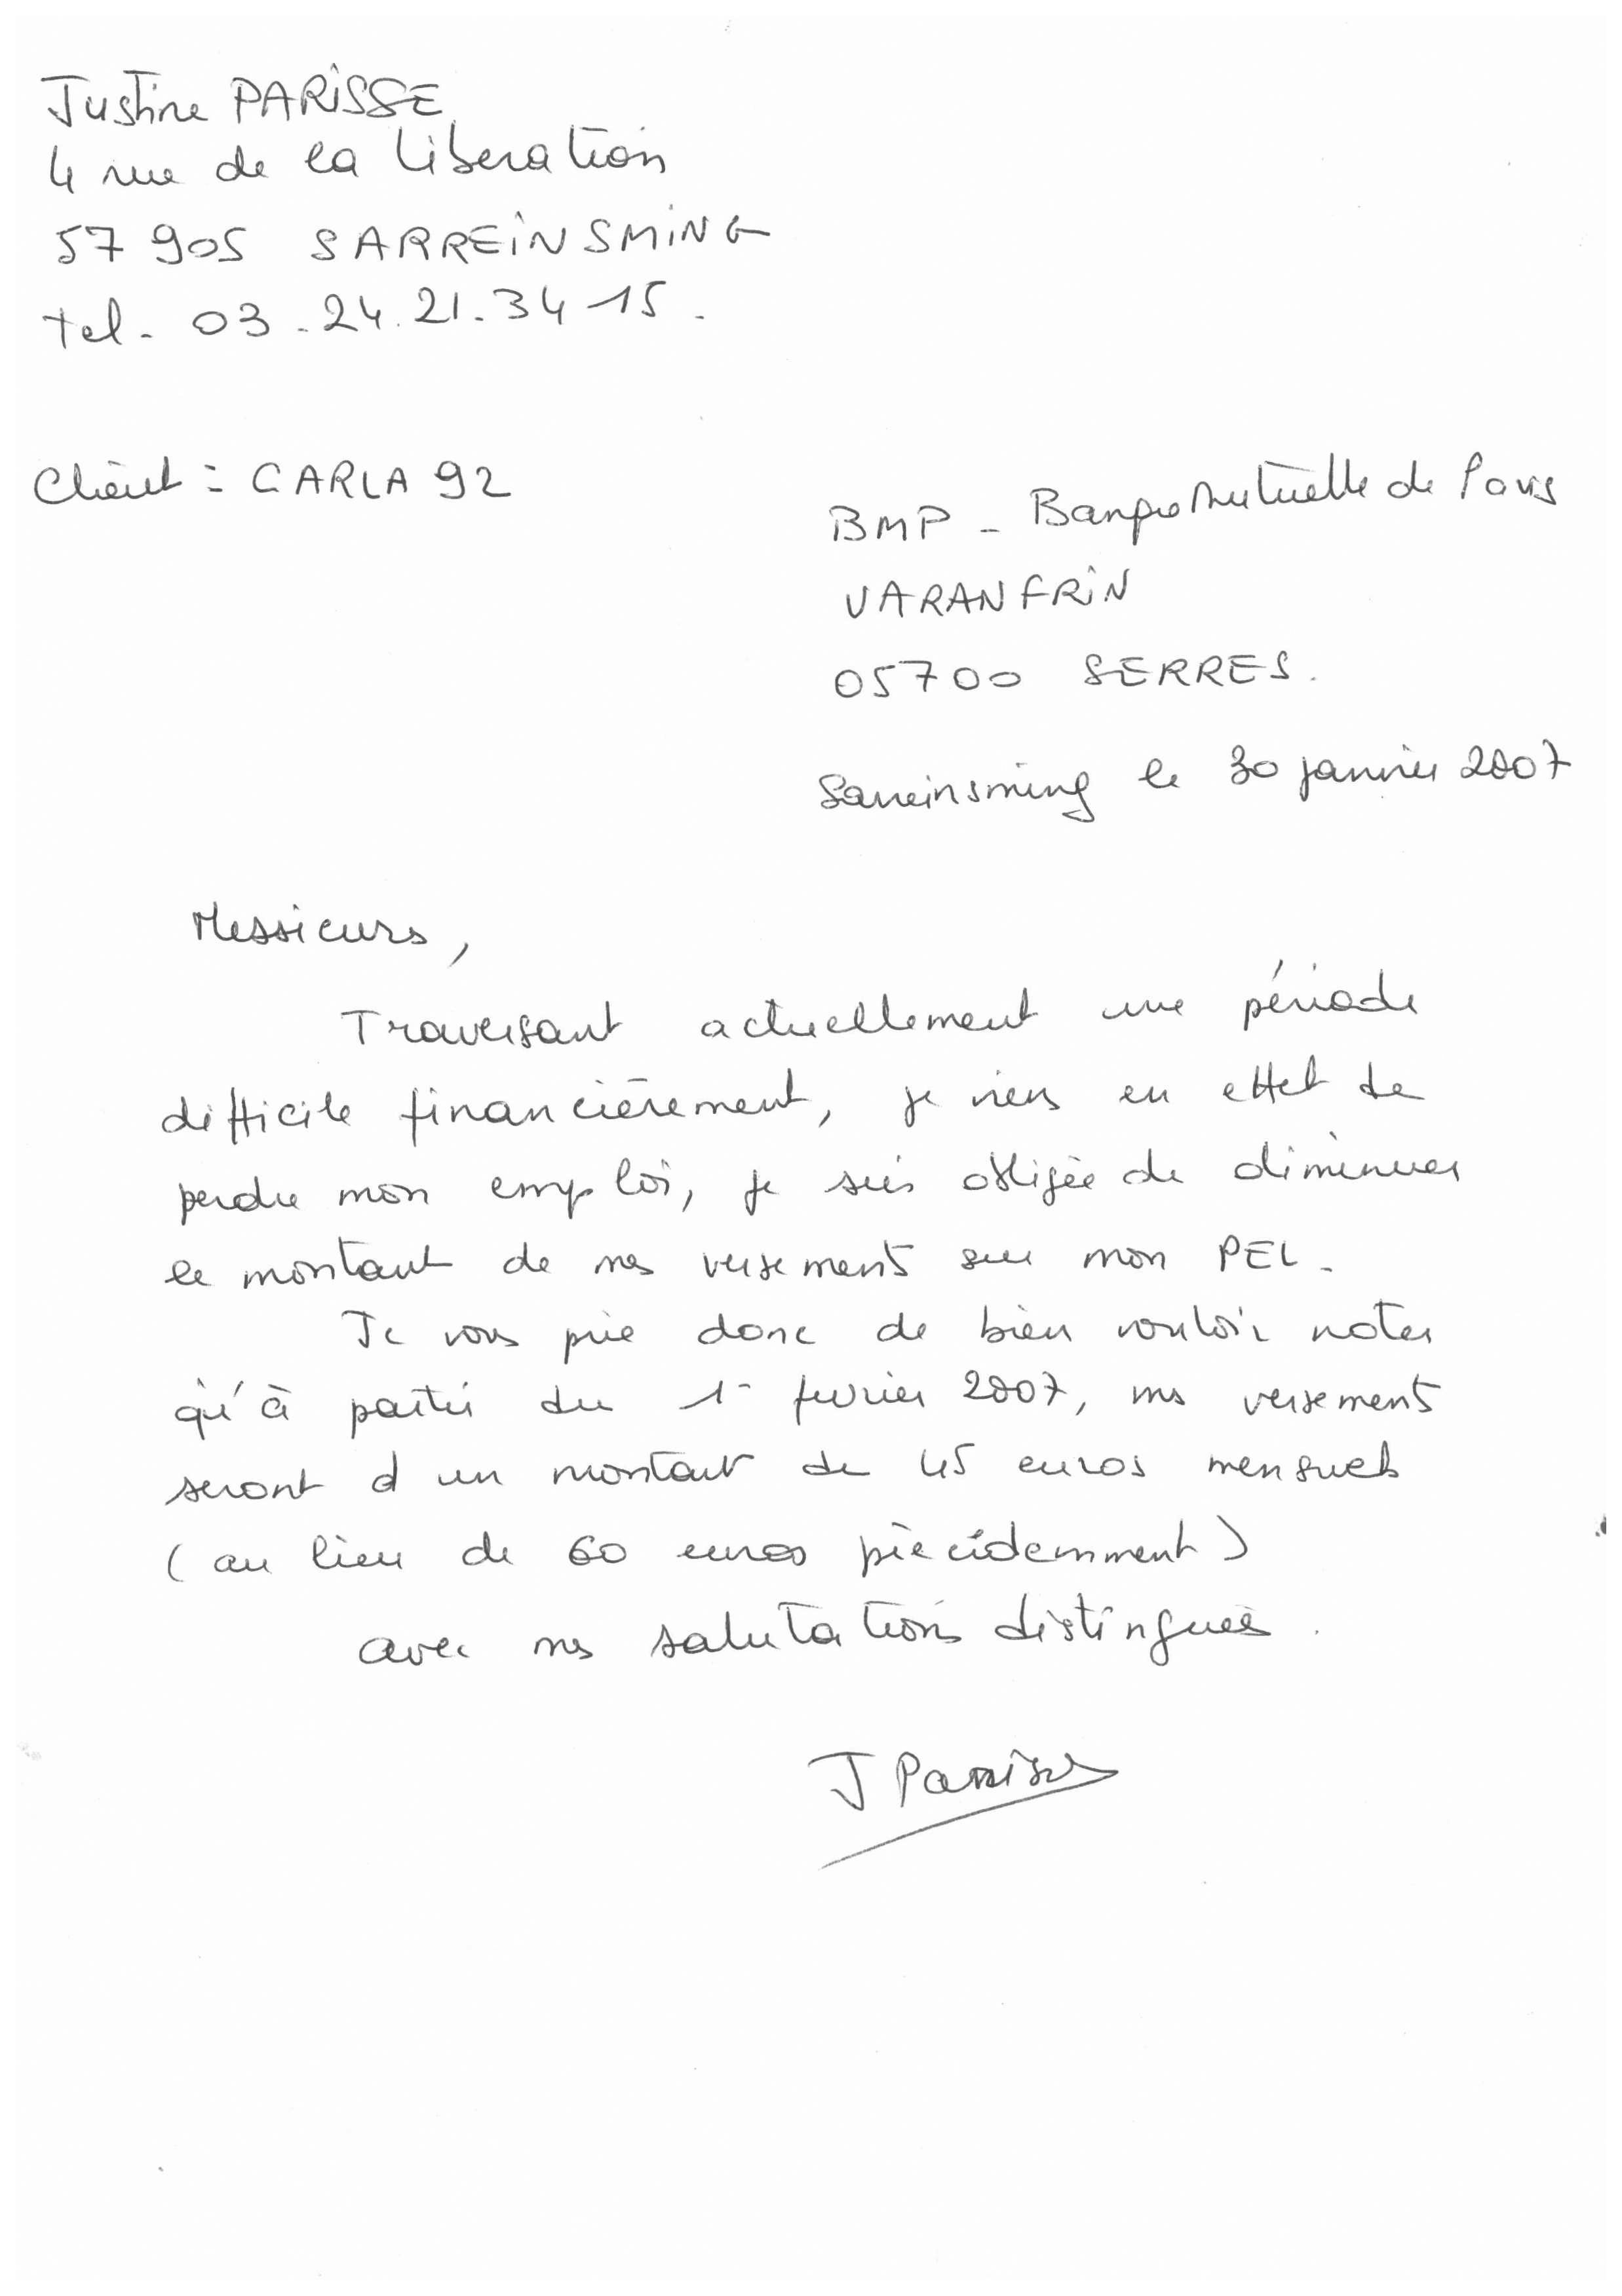 Justine PARISSE
4 rue de la Liberation
57 905 SARREINSMING
tel. 03.24.21.34 15.
Client : CARLA 92
BMP - Banque Mutuelle de Paris
VARANFRIN
05700 SERRES.
Sarreinsming le 30 janvier 2007
Messieurs,
Traversant actuellement une période
difficile financièrement, je viens en effet de
perdre mon emploi, je suis obligée de diminuer
le montant de mes versements sur mon PEL.
Je vous prie donc de bien vouloir noter
qu'à partir du 1er fevrier 2007, mes versements
seront d un montant de 45 euros mensuels
(au lieu de 60 euros précédemment)
avec mes salutations distingués.
J Parisse